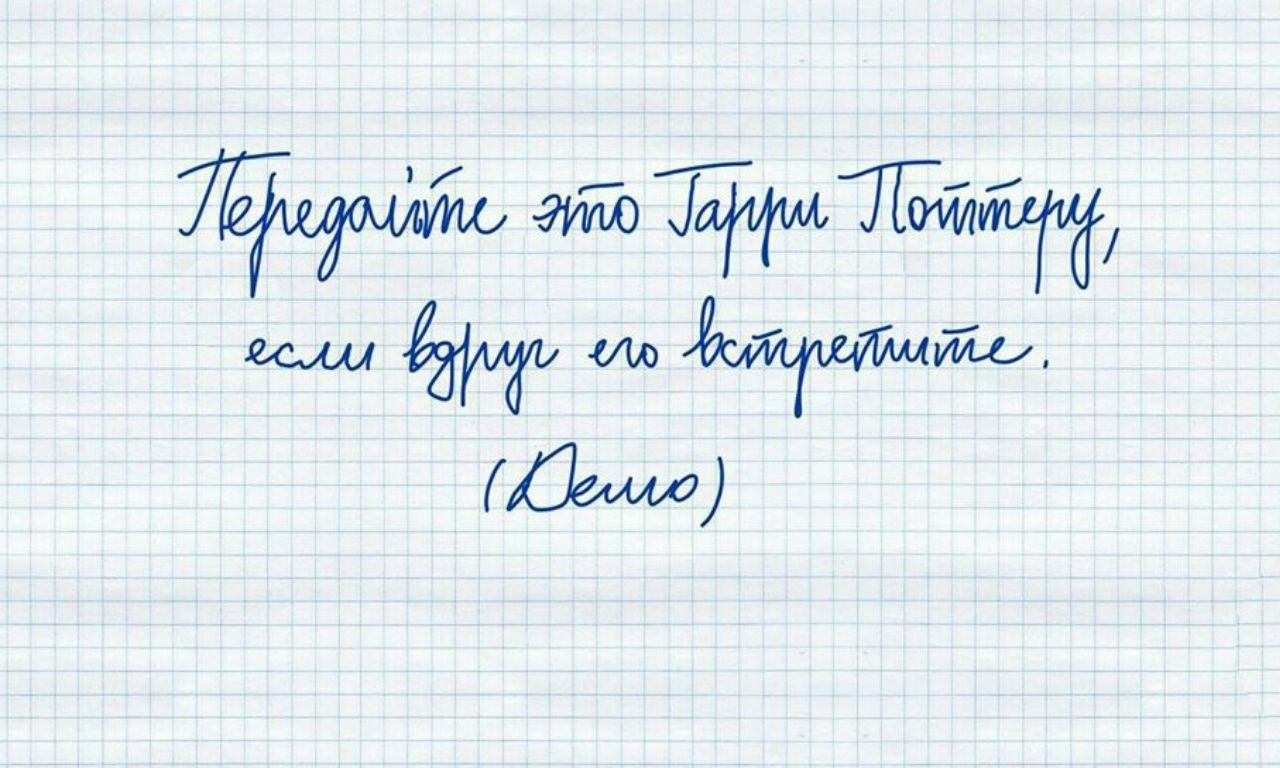 Передайте это Гарри Поттеру,
если вдруг его встретите.
(Демо)